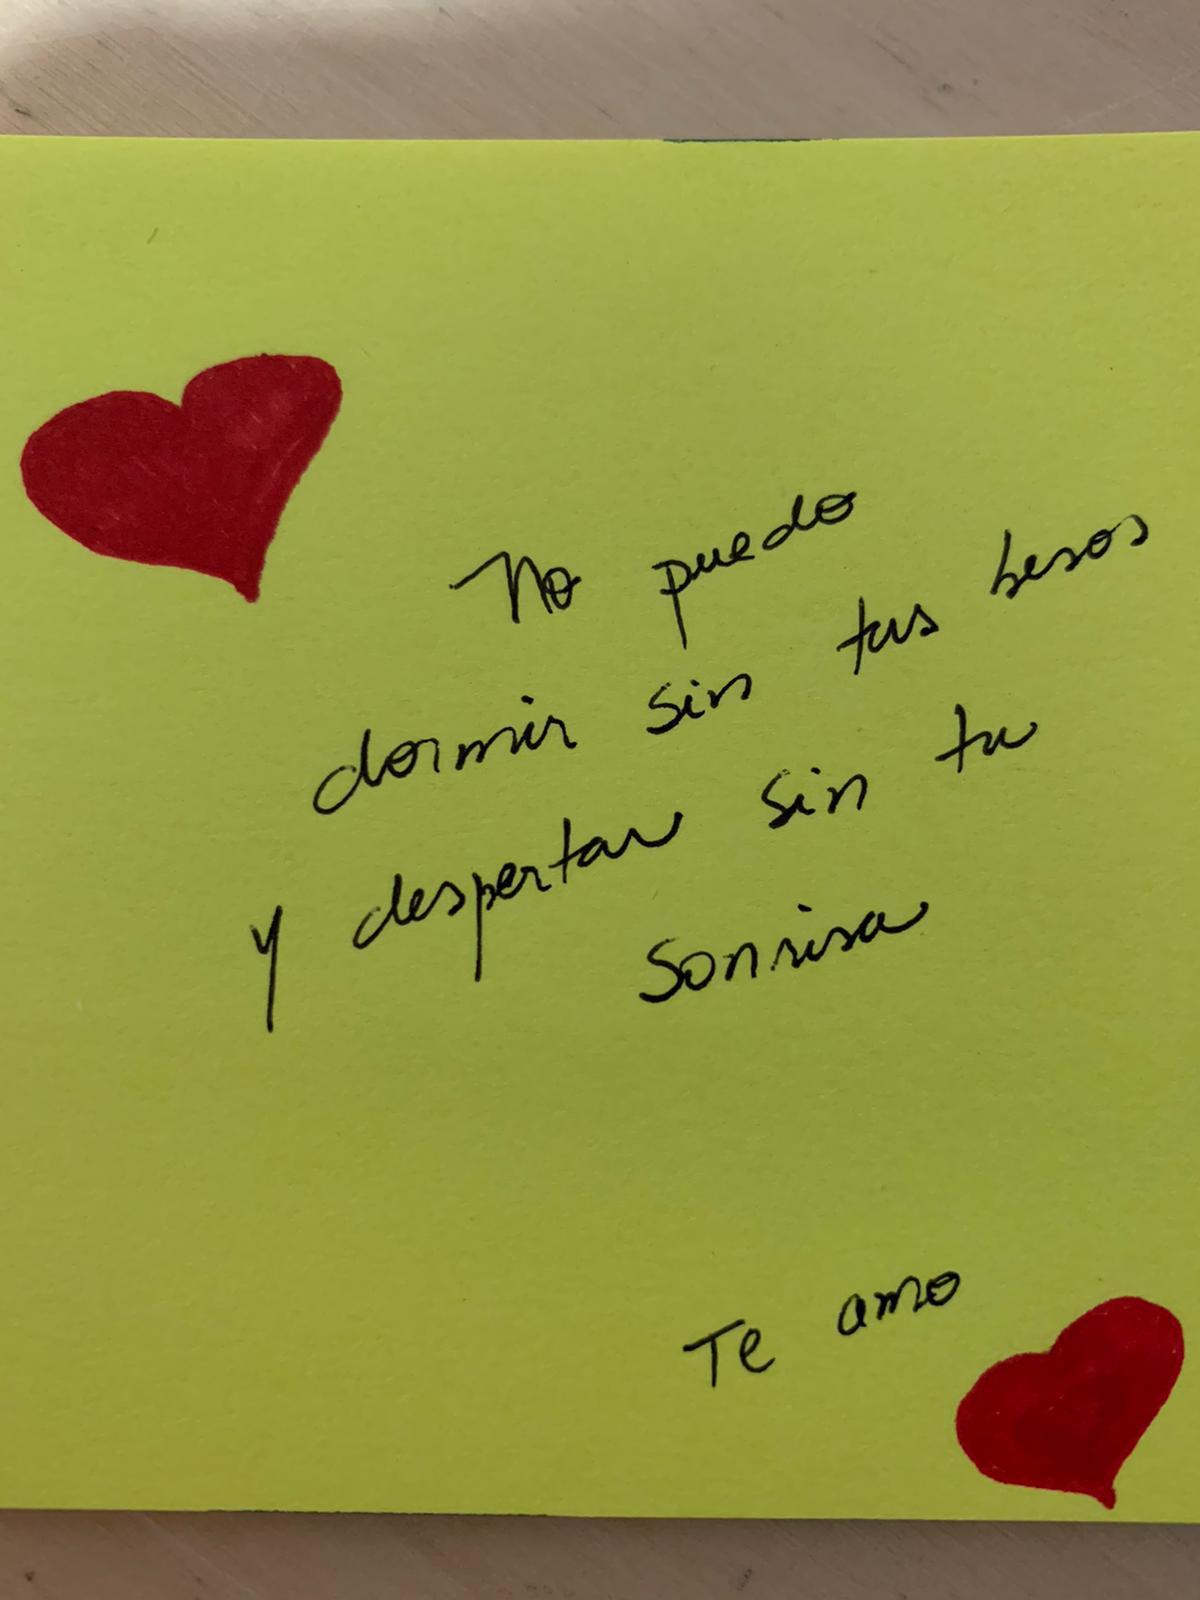 No puedo
dormir sin tus besos
y despertar sin tu
sonrisa
Te amo